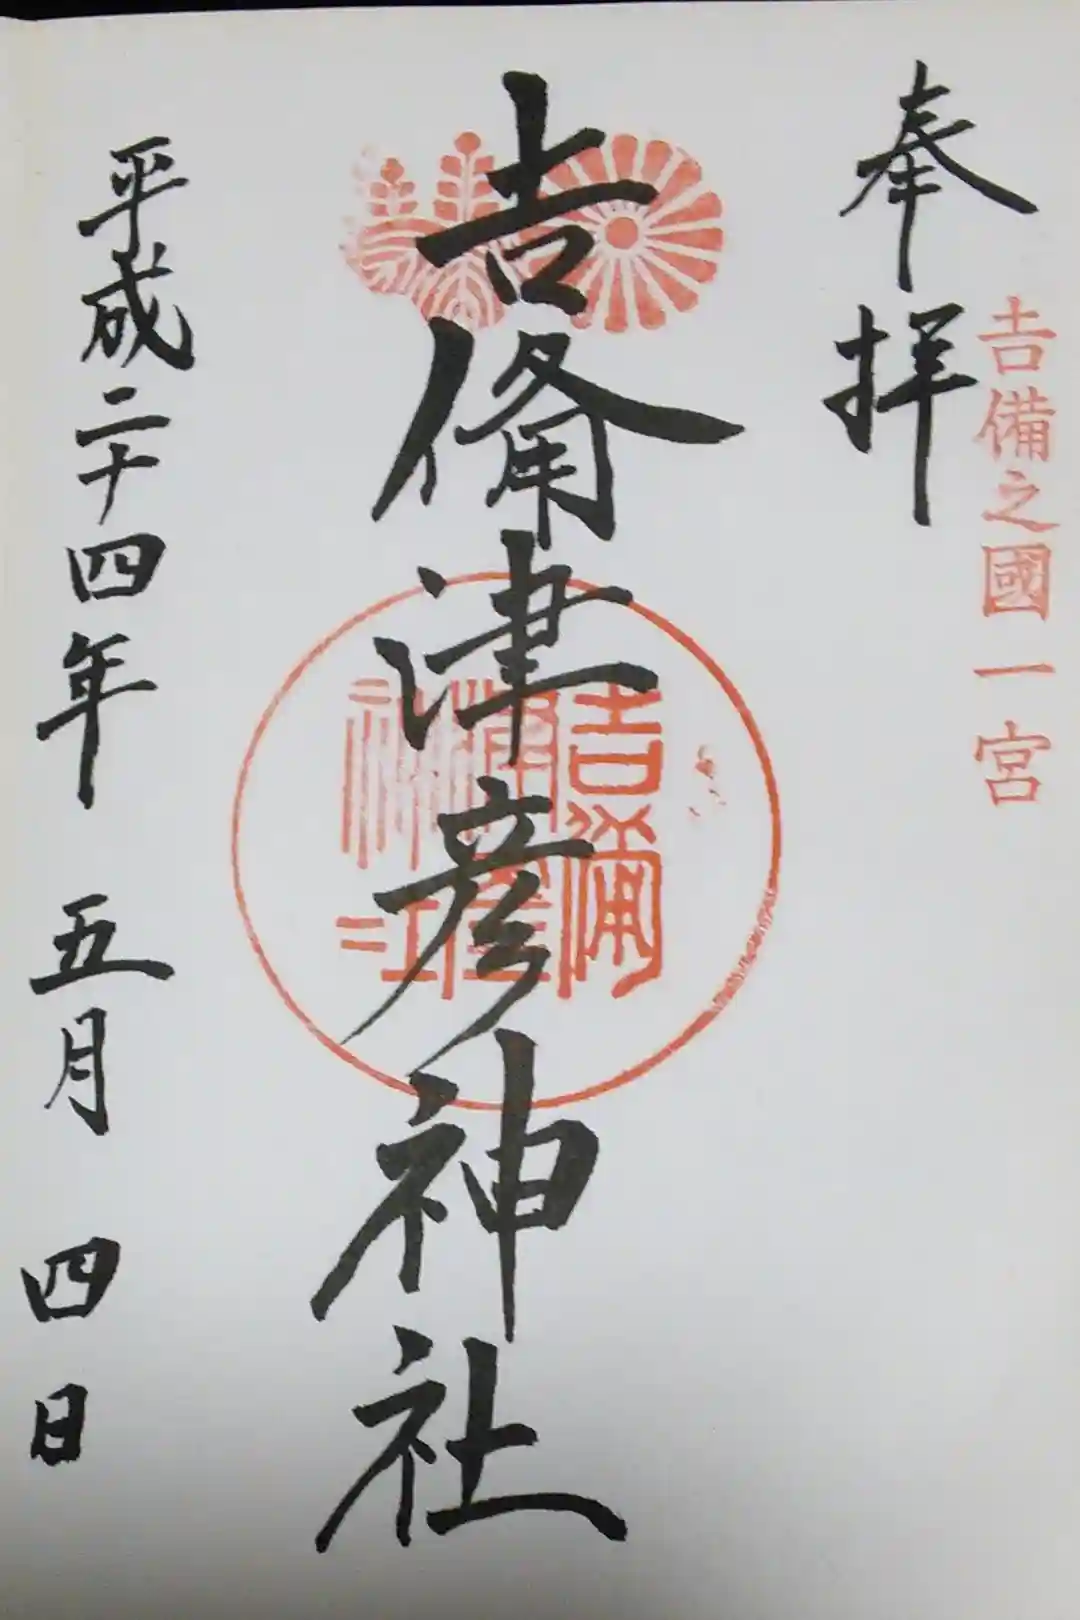 奉拝
吉備之國一宮
吉備津彦神社
吉備
津彦
神社
平成二十四年 五月 四日